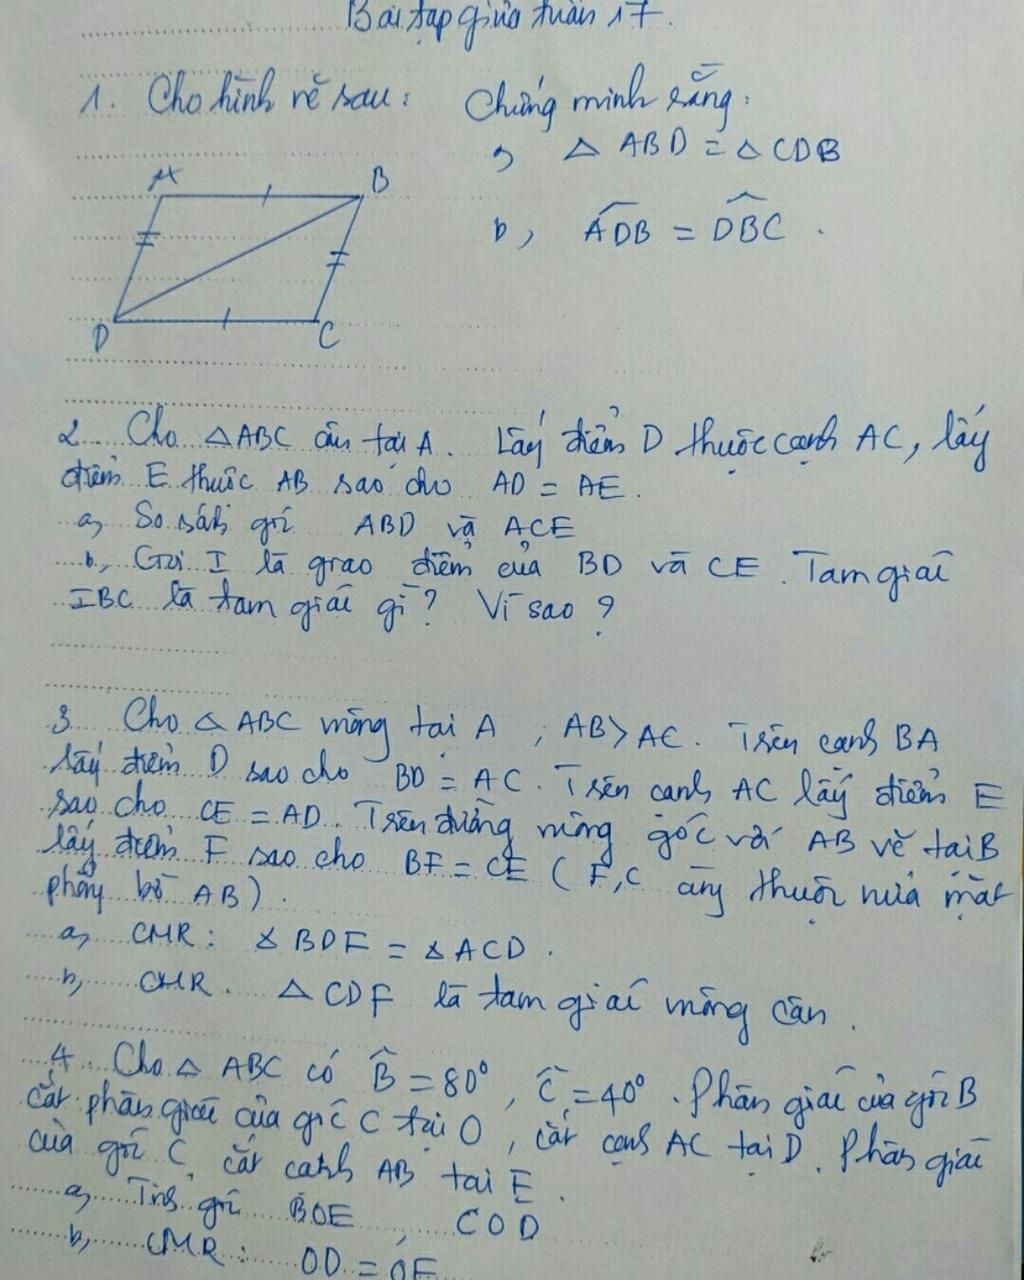 Bài tập giữa tuần 17.
1. Cho hình vẽ sau: Chứng minh rằng:
a, △ ABD = △ CDB
A B
b, ADB = DBC.
D C
2. Cho △ABC cân tại A. Lấy điểm D thuộc cạnh AC, lấy
điểm E thuộc AB sao cho AD = AE.
a, So sánh góc ABD và ACE
b, Gọi I là giao điểm của BD và CE. Tam giác
IBC là tam giác gì? Vì sao?
3. Cho △ ABC vuông tại A, AB > AC. Trên cạnh BA
lấy điểm D sao cho BD = AC. Trên cạnh AC lấy điểm E
sao cho CE = AD. Trên đường vuông góc với AB vẽ tại B
lấy điểm F sao cho BF = CE (F, C cùng thuộc nửa mặt
phẳng bờ AB).
a, CMR: △ BDF = △ ACD.
b, CMR. △ CDF là tam giác vuông cân.
4. Cho △ ABC có B̂ = 80°, Ĉ = 40°. Phân giác của góc B
cắt phân giác của góc C tại O, cắt cạnh AC tại D. Phân giác
của góc C cắt cạnh AB tại E.
a, Tính góc BOE, COD
b, CMR: OD = OE